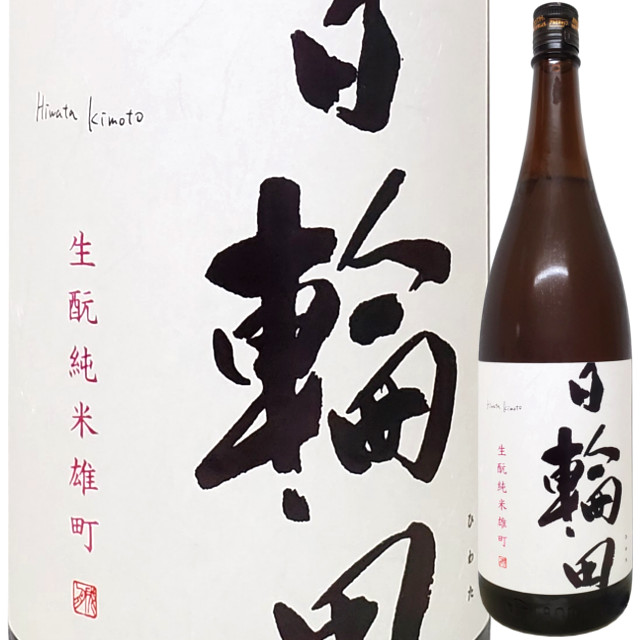 日輪田
ひわた
Hiwata Kimoto
生酛純米雄町
日輪田
ひわた
Hiwata Kimoto
生酛純米雄町